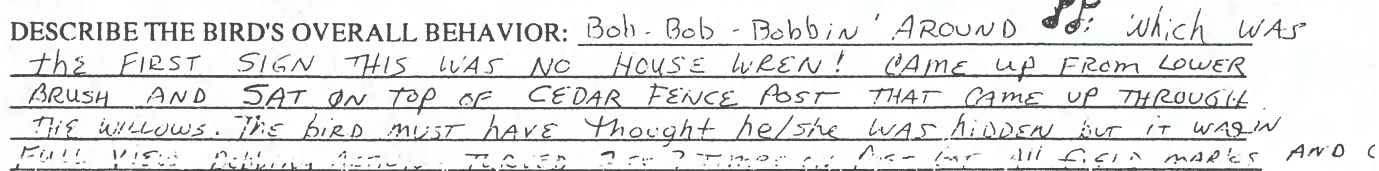 DESCRIBE THE BIRD'S OVERALL BEHAVIOR: Bob-Bob-Bobbin' AROUND which WAS
the FIRST SIGN THIS WAS NO HOUSE WREN! CAME up FROM LOWER
BRUSH AND SAT ON TOP OF CEDAR FENCE POST THAT CAME UP THROUGH
THE WILLOWS. The bIRD MUST hAVE thought he/she WAS hIDDEN but iT WAS IN
FULL VIEW All FIELD MARKS AND